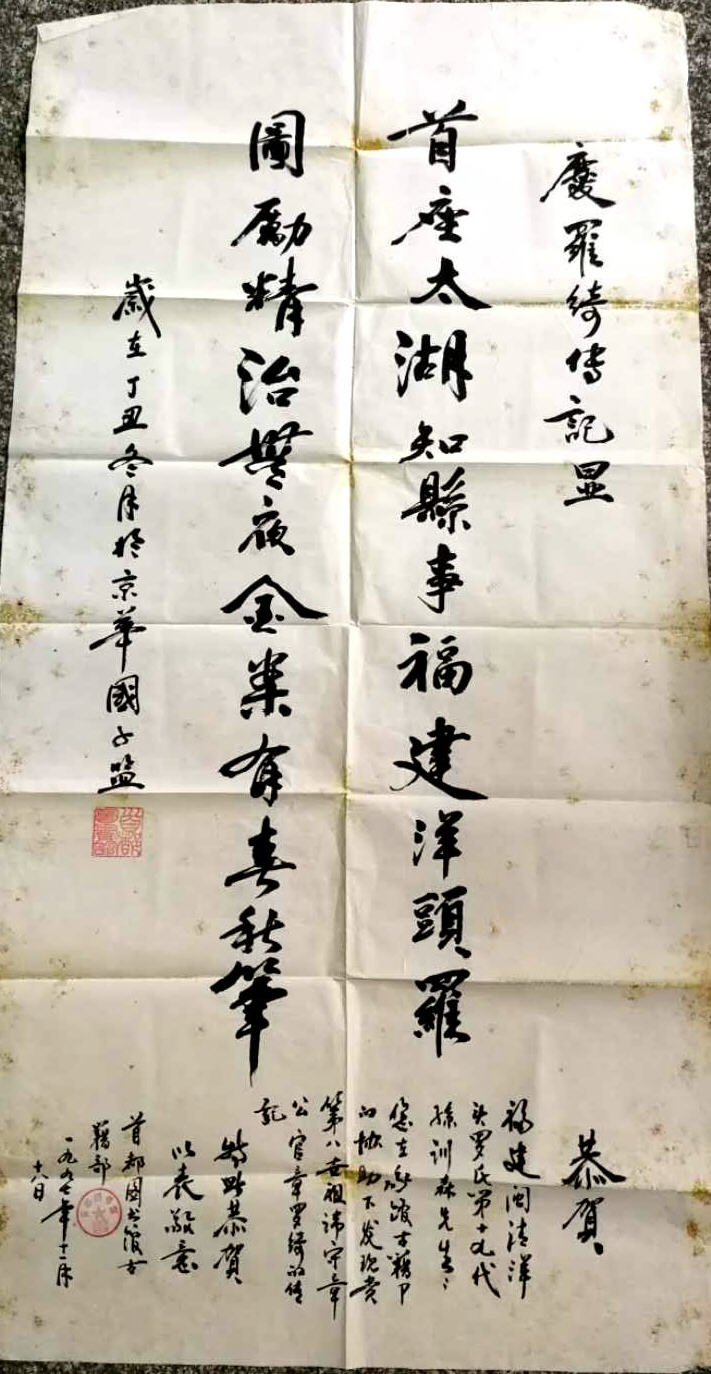 慶羅綺傳記显
首座太湖知縣事福建洋頭羅
圖勵精治無夜金業有春秋筆
歲在丁丑冬月於京華國子監
恭贺
福建闽清洋
头罗氏第十九代
孙训森先生：
您在我馆古籍部
的协助下发现贵
第八世祖讳字章
公官章罗绮的传
记
特此恭贺
以表敬意
首都图书馆古
籍部
一九九七年十二月
十八日